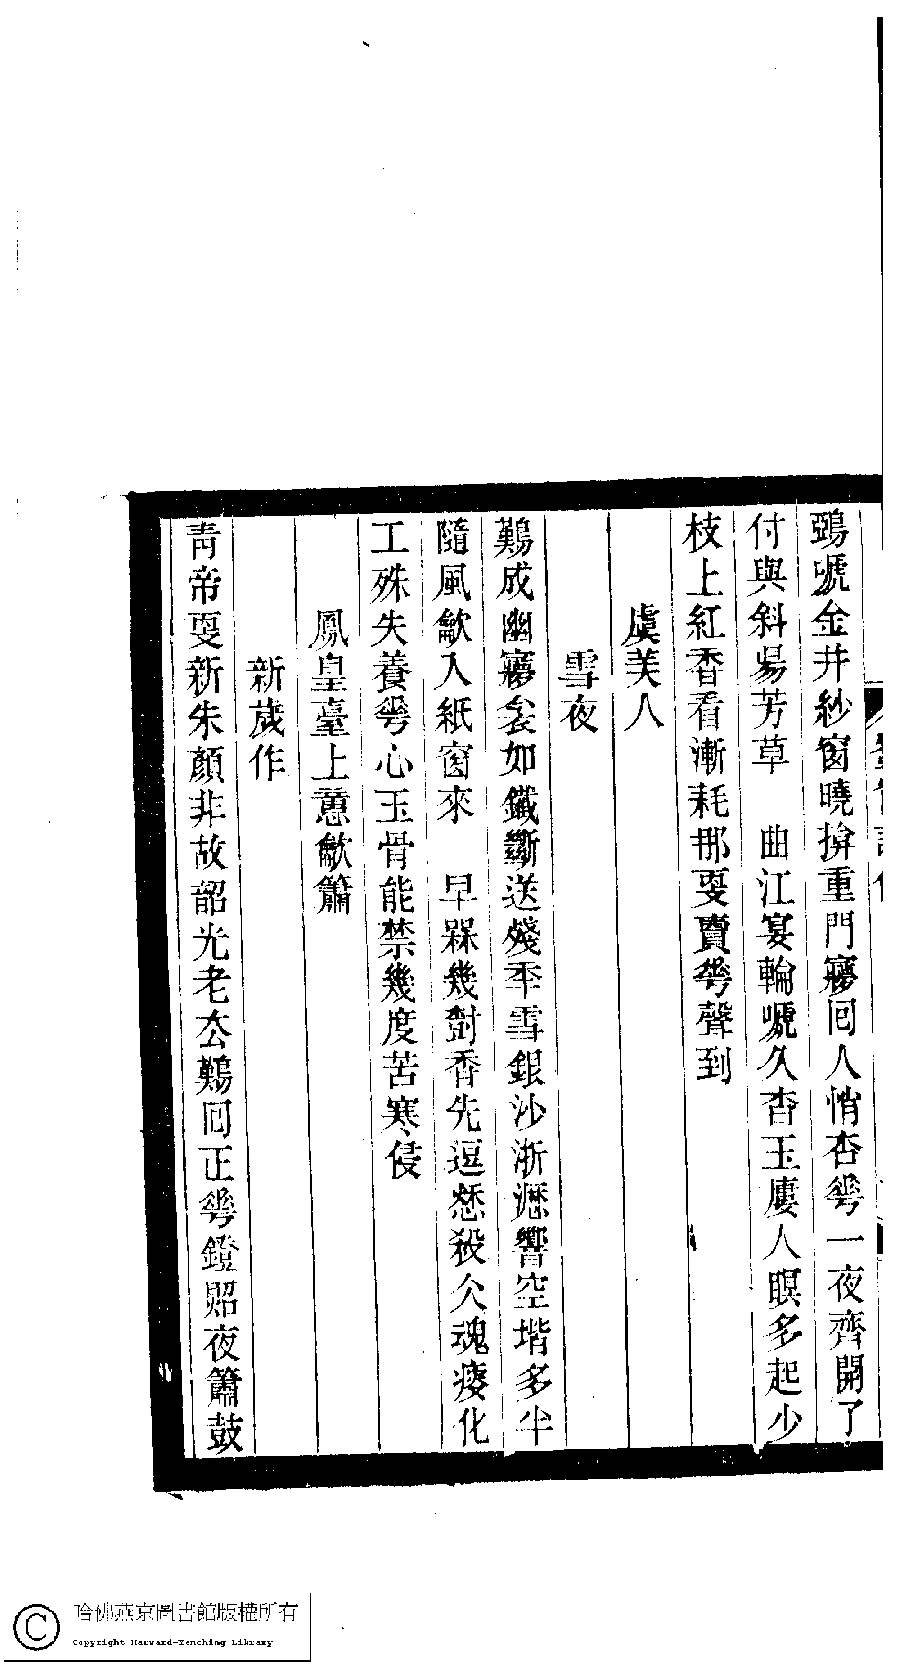 鵶嗁金井紗窗曉揜重門㝱回人悄杏蕐一夜齊開了
付與斜昜芳草　曲江宴輪嗁久杳玉廔人瞑多起少
枝上紅香看漸耗那叓賣蕐聲到
虞美人
雪夜
難成幽㝱衾如鐵斷送殘秊雪銀沙淅瀝響空堦多半
隨風歙入紙窗來　早槑幾對香先逗愁殺人魂瘦化
工殊失養蕐心玉骨能禁幾度苦寒侵
鳳皇臺上憶歙簫
新歲作
青帝叓新朱顏非故韶光老去難回正蕐鐙照夜簫鼓
哈佛燕京圖書館版權所有
Copyright Harvard-Yenching Library